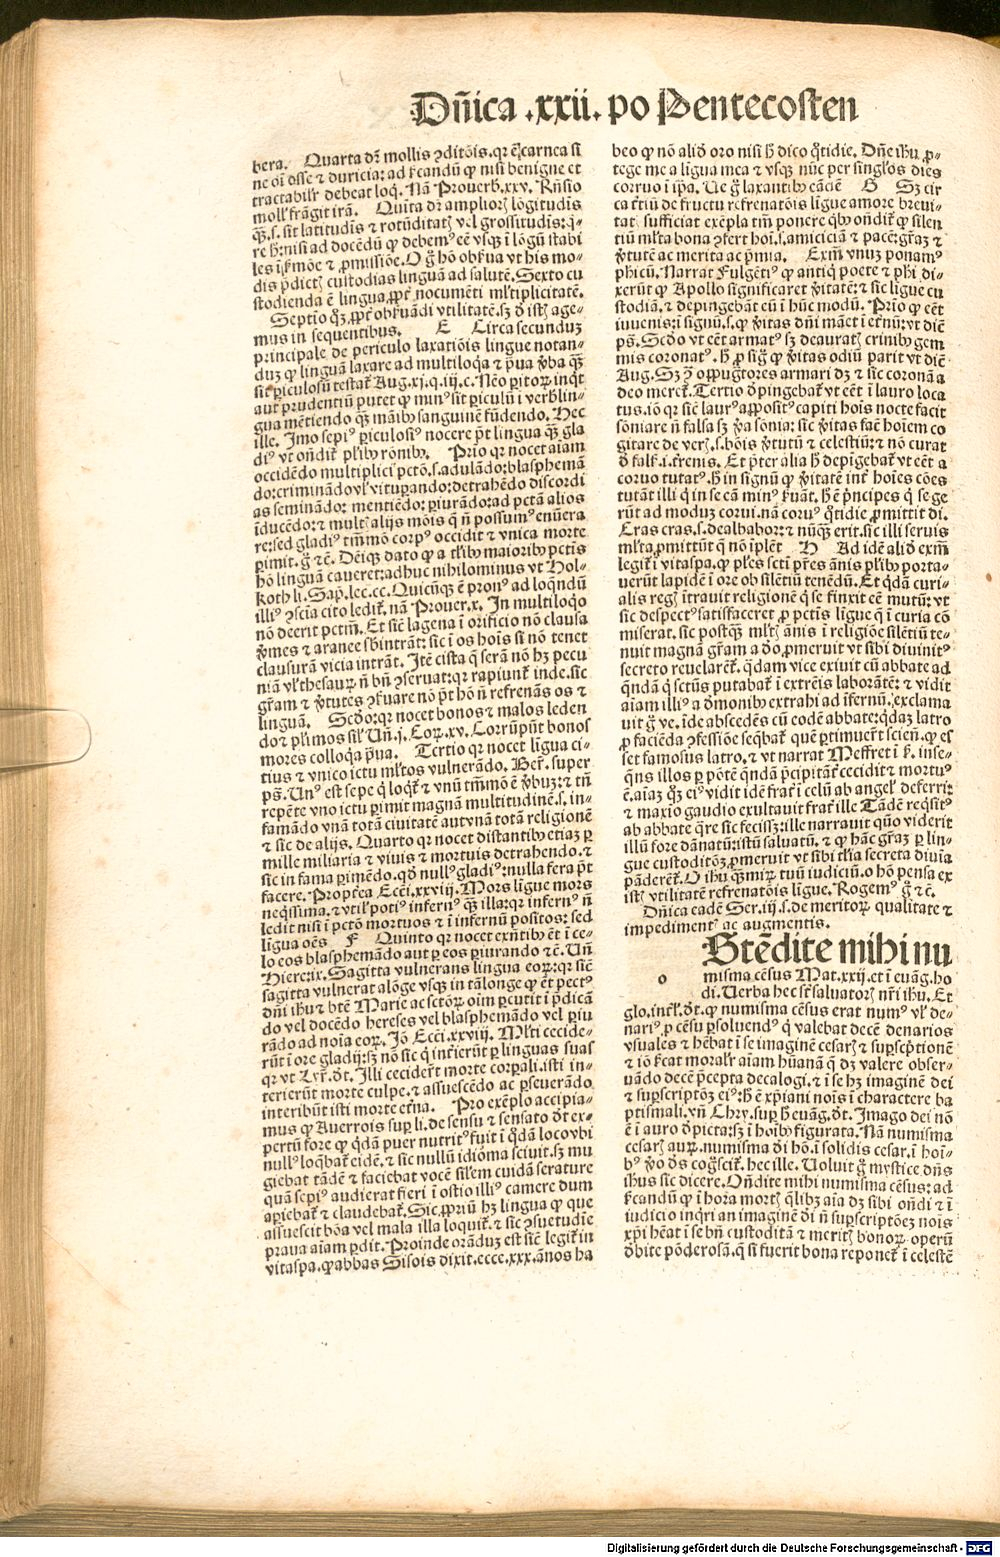 Dñica .xxii. po Pentecosten
bera. Quarta dr̄ mollis ꝯditõis. qꝛ ē carnea si
ne oī osse ⁊ duricia: ad ſcandū ꝙ nisi benigne et
tractabilr̄ debeat loq̄. Nā Prouerb. xxv. Rñsio
moll' frāgit irā. Quīta dr̄ ampliorꝭ lōgitudīs
q̄ꝫ .s. sit latitudīs ⁊ rotūditatꝭ vel grossitudīs: q̄-
re h̄: nisi ad docēdū ꝙ debemꝰ eē vsqꝫ ī lōgū stabi
les ī ẜmōe ⁊ ꝓmissiōe. O g̊ hō obẜua vt his mo-
dis p̄dictꝭ custodias linguā ad salutē. Sexto cu
stodienda ē lingua, ꝓpt̄ nocumēti ml̄tiplicitatē.
Septio qꝫ, ꝓpt̄ obẜuādi vtilitatē. sꝫ d̓ istꝭ age-
mus in sequentibus. E Circa secunduꝫ
principale de periculo laxatiōis lingue notan-
duꝫ ꝙ linguā laxare ad multiloq̄a ⁊ p̄ua v̓ba q̄ꝫ
sit ꝑiculosū testat̄ Aug. xj. q. iij. c. Nēo ꝑitoꝝ inq̄t
aut prudentiū putet ꝙ minꝰ sit ꝑiculū ī verb' lin-
gua mētiendo q̄ꝫ māibꝫ sanguinē fūdendo. Hec
ille. Imo sepiꝰ ꝑiculosiꝰ nocere pt̄ lingua q̄ꝫ gla
diꝰ vt oñdit̄ pl'ibꝫ rōnibꝫ. Prīo qꝛ nocet aīam
occidēdo multiplici pctō. s. adulādo: blasphemā
do: criminādo vl' vituꝑando: detrahēdo discordi
as seminādo: mentiēdo: ꝑiurādo: ad pctā alios
īducēdo: ⁊ multꝭ alijs mōis q̄ ñ possumꝰ enūera
re: sed gladiꝰ tm̄mō corpꝰ occidit ⁊ vnica morte
ꝑimit. g̊ ⁊c. Dēiqꝫ dato ꝙ a tl'ibꝫ maioribꝫ pctis
hō linguā caueret: adhuc nihilominus vt Hol-
koth li. Sap. lec. cc. Quicūqꝫ ē pronꝰ ad loq̄ndū
illiꝰ ꝯscīa cito ledit̄. nā Prouer. x. In multiloq̊
nō deerit pctm̄. Et sic̄ lagena ī orificio nō clausa
v̓mes ⁊ aranee sbintrāt: sic ī os hoīs si nō tenet
clausurā vicia intrāt. Itē cista q̄ serā nō hꝫ pecu
niā vl' thesauꝝ ñ bñ ꝯseruat: qꝛ rapiunt̄ inde. sic
gr̄am ⁊ v̓tutes ꝯẜuare nō pt̄ hō ñ refrenās os ⁊
linguā. Scd̓o: qꝛ nocet bonos ⁊ malos leden
do ⁊ pl'imos sil'. Vñ. j. Coꝝ. xv. Corrūpūt bonos
mores colloq̄a p̄ua. Tertio qꝛ nocet lingua ci-
tius ⁊ vnico ictu ml̄tos vulnerādo. Ber. super
ps. Vnꝰ est sepe q̄ loqt̄ ⁊ vnū tm̄mō ē v̓buꝫ: ⁊ tñ
repēte vno ictu ꝑimit magnā multitudinē. s. in-
famādo vnā totā ciuitatē aut vnā totā religionē
⁊ sic de alijs. Quarto qꝛ nocet distantibꝫ etiaꝫ ꝑ
mille miliaria ⁊ viuis ⁊ mortuis detrahendo. ⁊
sic in fama ꝑimēdo. qd̓ nullꝰ gladiꝰ: nulla fera pt̄
facere. Propt̄ea Ecci. xxviij. Mors ligue mors
neq̄ssima. ⁊ vtil' potiꝰ infernꝰ q̄ꝫ illa: qꝛ infernꝰ ñ
ledit nisi ī pctō mortuos ⁊ ī infernū positos: sed
līgua oēs F Quinto qꝛ nocet exñtibꝫ ēt ī ce-
lo eos blasphemādo aut ꝑ eos ꝑiurando ⁊c. Vñ
Hiere: ix. Sagitta vulnerans lingua eoꝝ: qꝛ sic̄
sagitta vulnerat alōge vsqꝫ in tālonge ꝙ ēt pectꝰ
dñi ihu ⁊ btē Marie ac sctōꝝ oīm ꝑcutit ī p̄dicā
do vel docēdo hereses vel blasphemādo vel ꝑiu
rādo ad noīa eoꝝ. Iō Ecci. xxviij. Ml̄ti cecide-
rūt ī ore gladij: sꝫ nō sic q̄ int̄ierūt ꝑ linguas suas
qꝛ vt Lyr̄. dt̄. Illi cecider̄t morte corꝑali. isti in-
terierūt morte culpe. ⁊ assuescēdo ac ꝑseuerādo
interibūt isti morte et̄na. Pro exēplo accipia-
mus ꝙ Auerrois suꝑ li. de sensu ⁊ sensato dt̄ ex-
pertū fore ꝙ q̄dā puer nutritꝰ fuit ī q̄dā loco vbi
nullꝰ loq̄bat̄ eidē. ⁊ sic nullū idioma sciuit. sꝫ mu
giebat tādē ⁊ faciebat vocē sil'em cuidā serature
quā sepiꝰ audierat fieri ī ostio illiꝰ camere dum
aꝑiebat̄ ⁊ claudebat̄. Sic, ꝓpriū hꝫ lingua ꝙ que
assuescit bōa vel mala illa loquit̄. ⁊ sic ꝯsuetudīe
praua aīam ꝑdit. Proinde orāduꝫ est sic̄ legit̄ in
vitaspa. ꝙ abbas Sisois dixit. ecce .xxx. ānos ha
beo ꝙ nō alid̓ oro nisi h̄ dico q̄tidie. Dñe ihu ꝓ-
tege me a ligua mea ⁊ vsqꝫ nūc per singl̓os dies
corruo ī ip̄a. Ve g̊ laxantibꝫ eā ē G Sꝫ cir
ca t̄tiū de fructu refrenatōis līgue amore breui-
tat̄ sufficiat exēpla tm̄ ponere q̄bꝫ oñdit̄ ꝙ silen
tiū ml̄ta bona ꝯfert hoī. s. amiciciā ⁊ pacē: gr̄aꝫ ⁊
v̓tutē ac merita ac p̄mia. Exm̄ vnuꝫ ponamꝰ
phicū. Narrat Fulgētiꝰ ꝙ antiq̄ poete ⁊ phi di-
xerūt ꝙ Apollo significaret v̓itatē: ⁊ sic ligue cu
stodiā. ⁊ depingebāt eū ī hūc modū. Prīo ꝙ eēt
iuuenis: ī signū. s. ꝙ v̓itas dñi māet ī et̄nū: vt dīc
ps. Scd̓o vt eēt armatꝰ sꝫ deauratꝭ crinibꝫ gem
mis coronatꝰ. h̄ ꝓ sig̊ ꝙ v̓itas odiū parit vt dīc
Aug. Sꝫ ꝯ̄ oppug̊tores armari dꝫ ⁊ sic coronā a
deo meret̄. Tertio d̓pingebat̄ vt eēt ī lauro loca
tus. iō qꝛ sic̄ laurꝰ apposit̄ꝰ capiti hoīs nocte facit
sōniare ñ falsa sꝫ v̓a sōnia: sic v̓itas fac̄ hoīem co
gitare de verꝭ. s. bōis v̓tutū ⁊ celestiū: ⁊ nō curat
d̓ fals̄. i. t̄renis. Et p̄ter alia h̄ depīgebat̄ vt eēt a
coruo tutatꝰ. h̄ in signū ꝙ v̓itatē int̄ hoīes cōes
tutāt illi q̄ in se eā minꝰ ẜuāt. h̄ ē p̄ncipes q̄ se ge
rūt ad moduꝫ corui. nā coruꝰ q̄tidie ꝓmittit di.
Cras cras. s. dealbabor: ⁊ nūqꝫ erit. sic illi seruis
ml̄ta ꝓmittūt q̄ nō īplēt H Ad idē alid̓ exm̄
legit̄ ī vitaspa. ꝙ pl'es scti pr̄es ānis pl'ibꝫ porta-
uerūt lapidē ī ore ob silētiū tenēdū. Et q̄dā curi-
alis regꝭ ītrauit religionē q̄ se finxit eē mutū: vt
sic despectꝰ satisfaceret ꝓ pctis līgue q̄ ī curia cō
miserat. sic postq̄ꝫ ml̄tꝭ ānis ī religiōe silētiū te-
nuit magnā gr̄am a d̓o, ꝓmeruit vt sibi diuinitꝰ
secreto reuelaret̄. q̄dam vice exiuit cū abbate ad
q̄ndā q̄ sctūs putabat̄ ī extrēis laborātē: ⁊ vidit
aīam illiꝰ a d̓monibꝫ extrahi ad īfernū. exclama
uit g̊ ve. īde abscedēs cū eodē abbate: q̄daꝫ latro
ꝓ faciēda ꝯfessiōe seq̄bat̄ quē ꝑtimuer̄t sciēn. ꝙ es
set famosus latro. ⁊ vt narrat Meffret ī ẜ. inse-
q̄ns illos ꝑ pōtē q̄ndā p̄cipitāt̄ cecidit ⁊ mortuꝰ
ē. aīaꝫ qꝫ eiꝰ vidit idē frat̄ ī celū ab angel' deferri:
⁊ maxīo gaudio exultauit frat̄ ille Tādē req̄sitꝰ
ab abbate q̄re sic fecissꝫ: ille narrauit quō viderit
illū fore dānatū: istū saluatū. ⁊ ꝙ hāc gr̄aꝫ ꝑ lin-
gue custoditōꝫ, ꝓmeruit vt sibi tl'ia secreta diuīa
pāderēt̄. O ihu q̄ꝫ mirꝫ tuū iudiciū. o hō pensa ex
istꝭ vtilitatē refrenatōis ligue. Rogemꝰ g̊ ⁊c.
Dñica eadē Ser. iij. s. de meritoꝝ qualitate ⁊
impedimentꝭ ac augmentis.
Ostēdite mihi nu
o misma cēsus Mat. xxij. et ī euāg. ho
di. Verba hec st̄ saluatorꝭ nr̄i ihu. Et
glo. int̄l'. dt̄. ꝙ numisma cēsus erat numꝰ vl' de-
nariꝰ, ꝓ cēsu ꝑsoluendꝰ q̄ valebat decē denarios
vsuales ⁊ hēbat ī se imaginē cesarꝭ ⁊ suꝑscp̄tionē
⁊ iō ẜcat moralr̄ aīam hūanā q̄ dꝫ valere obser-
uādo decē p̄cepta decalogi. ⁊ ī se hꝫ imaginē dei
⁊ suꝑscriptōꝫ eiꝰ: h̄ ē xp̄iani nois ī charactere ba
ptismali. vñ Chry. suꝑ h̄ euāg. dt̄. Imago dei nō
ē ī auro d̓picta: sꝫ ī hoībꝫ figurata. Nā numisma
cesarꝭ auꝝ. numisma d̓i hō. ī solidis cesar. ī hoī-
bꝰ v̓o d̓s cog̊scit̄. hec ille. Voluit g̊ mystice dñs
ihus sic dicere. Oñdite mihi numisma cēsus: ad
ẜcandū ꝙ ī hora mortꝭ q̄libꝫ aīa dꝫ sibi oñdi ⁊ ī
iudicio inq̄ri an imaginē d̓i ñ suꝑscriptōeꝫ noīs
xp̄i hēat ī se bñ custoditā ⁊ meritꝭ bonoꝝ operū
d̓bite pōderosā. q̄ si fuerit bona reponet̄ ī celestē
Digitalisierung gefördert durch die Deutsche Forschungsgemeinschaft - DFG